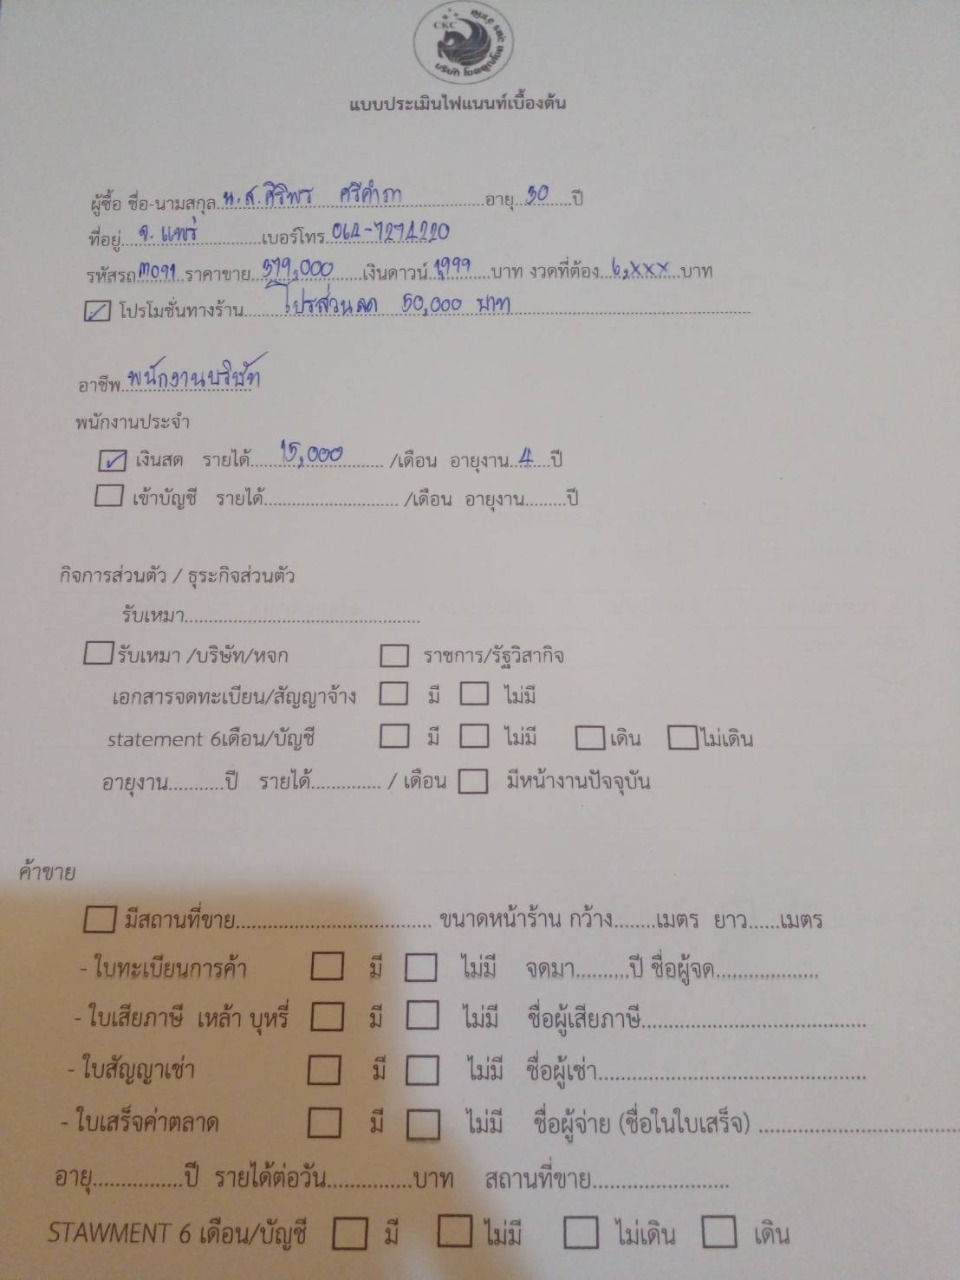 CKC
แบบประเมินไฟแนนท์เบื้องต้น
ผู้ซื้อ ชื่อ-นามสกุล น.ส.ศิริพร ศรีคำภา อายุ 30 ปี
ที่อยู่ จ.แพร่ เบอร์โทร 064-7274220
รหัสรถ M091 ราคาขาย 379,000 เงินดาวน์ 1,999 บาท งวดที่ต้อง 6,xxx บาท
โปรโมชั่นทางร้าน โปรส่วนลด 50,000 บาท
อาชีพ พนักงานบริษัท
พนักงานประจำ
เงินสด รายได้ 15,000 /เดือน อายุงาน 4 ปี
เข้าบัญชี รายได้ /เดือน อายุงาน ปี
กิจการส่วนตัว / ธุระกิจส่วนตัว
รับเหมา
รับเหมา /บริษัท/หจก ราชการ/รัฐวิสากิจ
เอกสารจดทะเบียน/สัญญาจ้าง มี ไม่มี
statement 6เดือน/บัญชี มี ไม่มี เดิน ไม่เดิน
อายุงาน ปี รายได้ / เดือน มีหน้างานปัจจุบัน
ค้าขาย
มีสถานที่ขาย ขนาดหน้าร้าน กว้าง เมตร ยาว เมตร
- ใบทะเบียนการค้า มี ไม่มี จดมา ปี ชื่อผู้จด
- ใบเสียภาษี เหล้า บุหรี่ มี ไม่มี ชื่อผู้เสียภาษี
- ใบสัญญาเช่า มี ไม่มี ชื่อผู้เช่า
- ใบเสร็จค่าตลาด มี ไม่มี ชื่อผู้จ่าย (ชื่อในใบเสร็จ)
อายุ ปี รายได้ต่อวัน บาท สถานที่ขาย
STAWMENT 6 เดือน/บัญชี มี ไม่มี ไม่เดิน เดิน